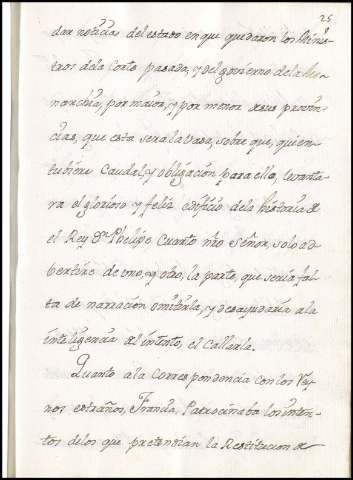 25
dar noticias del estado en que quedaron los Minis
tros de la Corte pasada, y del govierno de la Mo
narchia, por maior, y por menor de sus provin
cias, que esta sera la vasa, sobre que, quien
tubiere Caudal, y obligación para ello, levanta
ra el glorioso y feliz edificio de la historia de
el Rey Dn. Phelipe Cuarto nro Señor, solo ad
bertire de uno, y otro, la parte, que sería fal
ta de narracion omitirla, y desayudaria a la
inteligencia del intento, el Callarla.
Quanto a la Correspondencia con los Rey
nos estraños, Francia, Patrocinaba los inten
tos de los que pretendian la Restitucion de